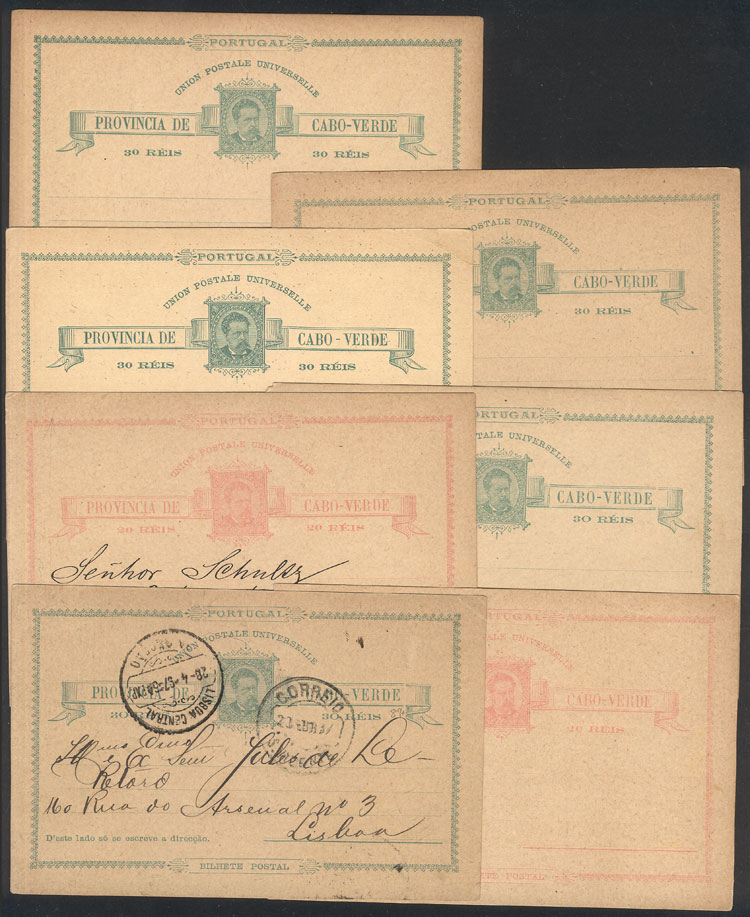 PORTUGAL
UNION POSTALE UNIVERSELLE
PROVINCIA DE CABO-VERDE
30 RÉIS 30 RÉIS
PORTUGAL
POSTALE UNIVERSELLE
CABO-VERDE
30 RÉIS
PORTUGAL
UNION POSTALE UNIVERSELLE
PROVINCIA DE CABO-VERDE
30 RÉIS 30 RÉIS
PORTUGAL
UNION POSTALE UNIVERSELLE
PROVINCIA DE CABO-VERDE
20 RÉIS 20 RÉIS
Señhor Schultz
RTUGAL
TALE UNIVERSELLE
CABO-VERDE
30 RÉIS
PORTUGAL
POSTALE UNIVERSELLE
PRO DE VERDE
30 30 RÉIS
LISBOA CENTRAL
28-4-97
CORREIO
Julio de
160 Rua do Arsenal nº 3
Lisboa
D'este lado só se escreve a direcção.
BILHETE POSTAL
PORTUGAL
UNIVERSELLE
CABO-VERDE
20 RÉIS
ETE POSTAL